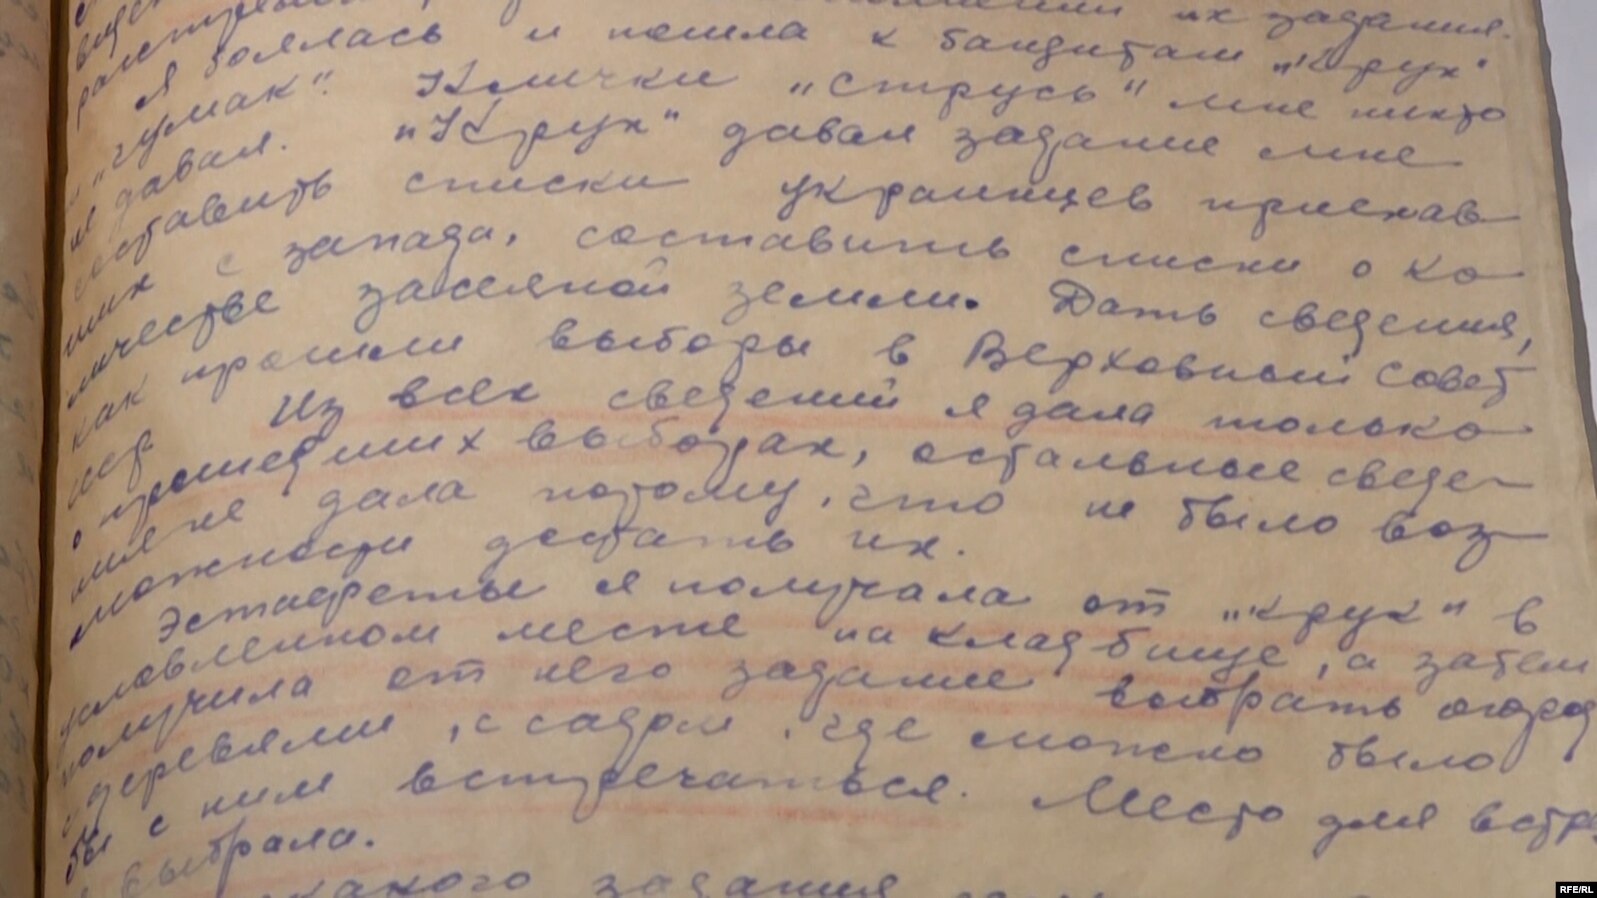 их задания.
Я боялась и пошла к бандитам „Крук"
и „Чумак". Клички „Струсь" мне никто
не давал. „Крук" давал задание мне
составить списки украинцев приехав
ших с запада, составить списки о ко
личестве засеяной земли. Дать сведения,
как прошли выборы в Верховный Совет
Из всех сведений я дала только
о прошедших выборах, остальные сведе-
ния не дала потому, что не было воз-
можности достать их.
Эстафеты я получала от „Крук" в
условленном месте на кладбище, а затем
получила от него задание выбрать огород
с деревьями, с садом, где можно было
бы с ним встречаться. Место для встре
выбрала.
какого задания
RFE/RL